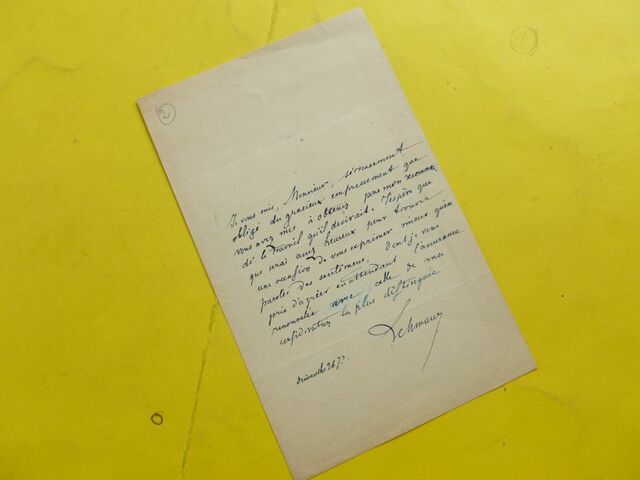 2
Je vous suis, Monsieur, sérieusement
obligé du gracieux empressement que
vous avez mis à obtenir pour mon recommandé
le travail qu'il désirait. J'espère que
que serai assez heureux pour trouver
une occasion de vous exprimer mieux qu'en
paroles des sentimens, dont je vous
prie d'agréer en attendant l'assurance
renouvelée avec celle de ma
considération la plus distinguée
Lehmann
26 7